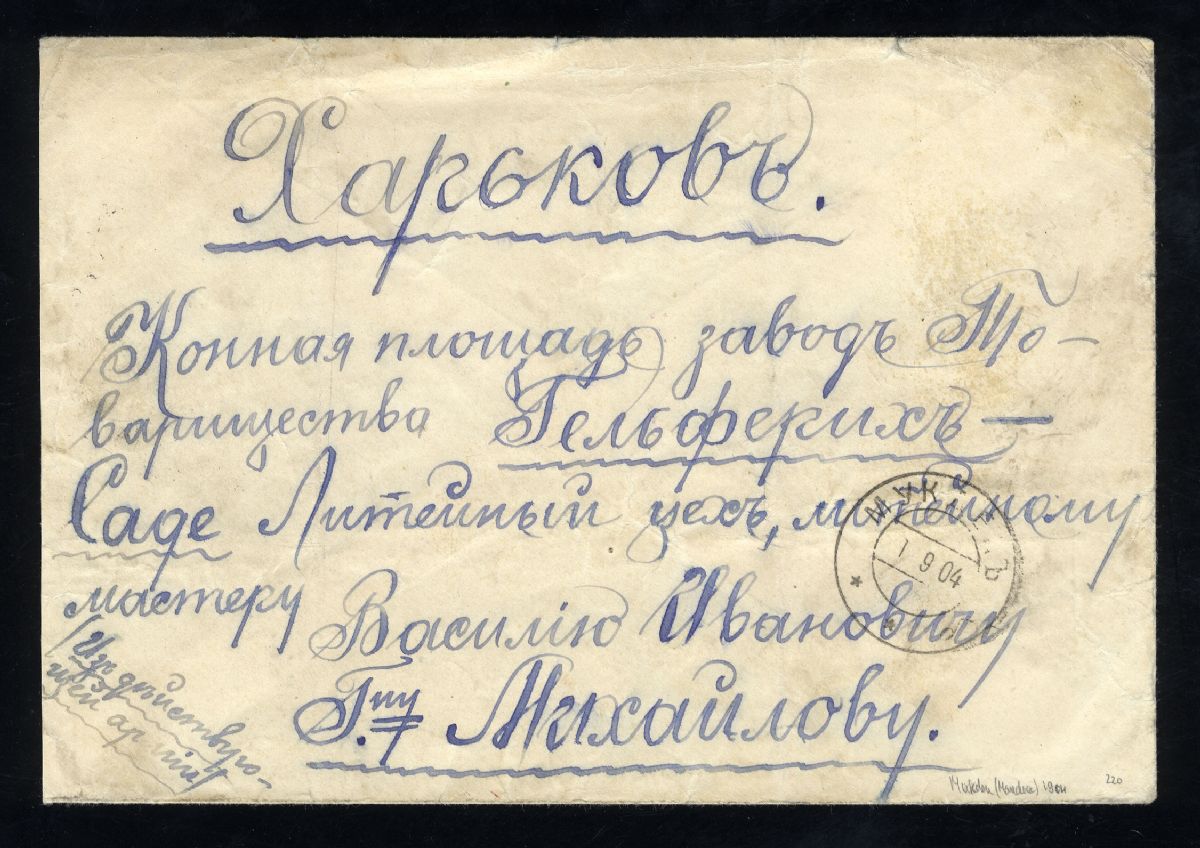 Харьковъ.
Конная площадь заводъ То-
варищества Гельферихъ—
Саде Литейный цехъ, литейному
мастеру
Василію Ивановичу
Г.ну Михайлову.
/Изъ действую-
щей арміи/
МУКДЕНЪ
1 9 04
Mukden 1904
220